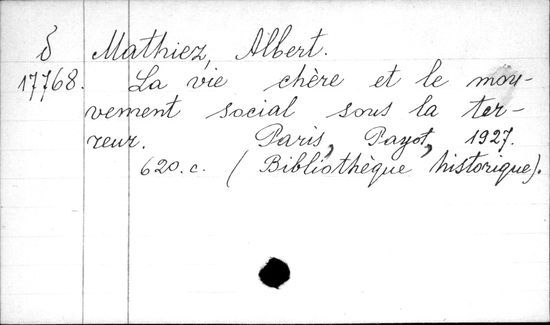 δ Mathiez, Albert.
17768. La vie chère et le mou-
vement social sous la ter-
reur. Paris, Payot, 1927.
620.c. (Bibliothèque historique).